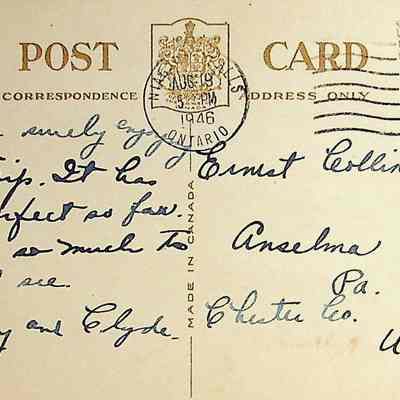 POST CARD
CORRESPONDENCE ADDRESS ONLY
NIAGARA FALLS
AUG 19
5 PM
1946
ONTARIO
surely enjoy
trip. It has
perfect so far.
so much to
see.
and Clyde.
MADE IN CANADA
Ernest Collin
Anselma
Pa.
Chester Co.
U